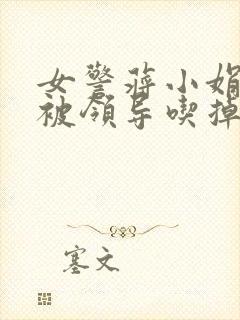 女警蒋小娟
被领导喫掉
塞文